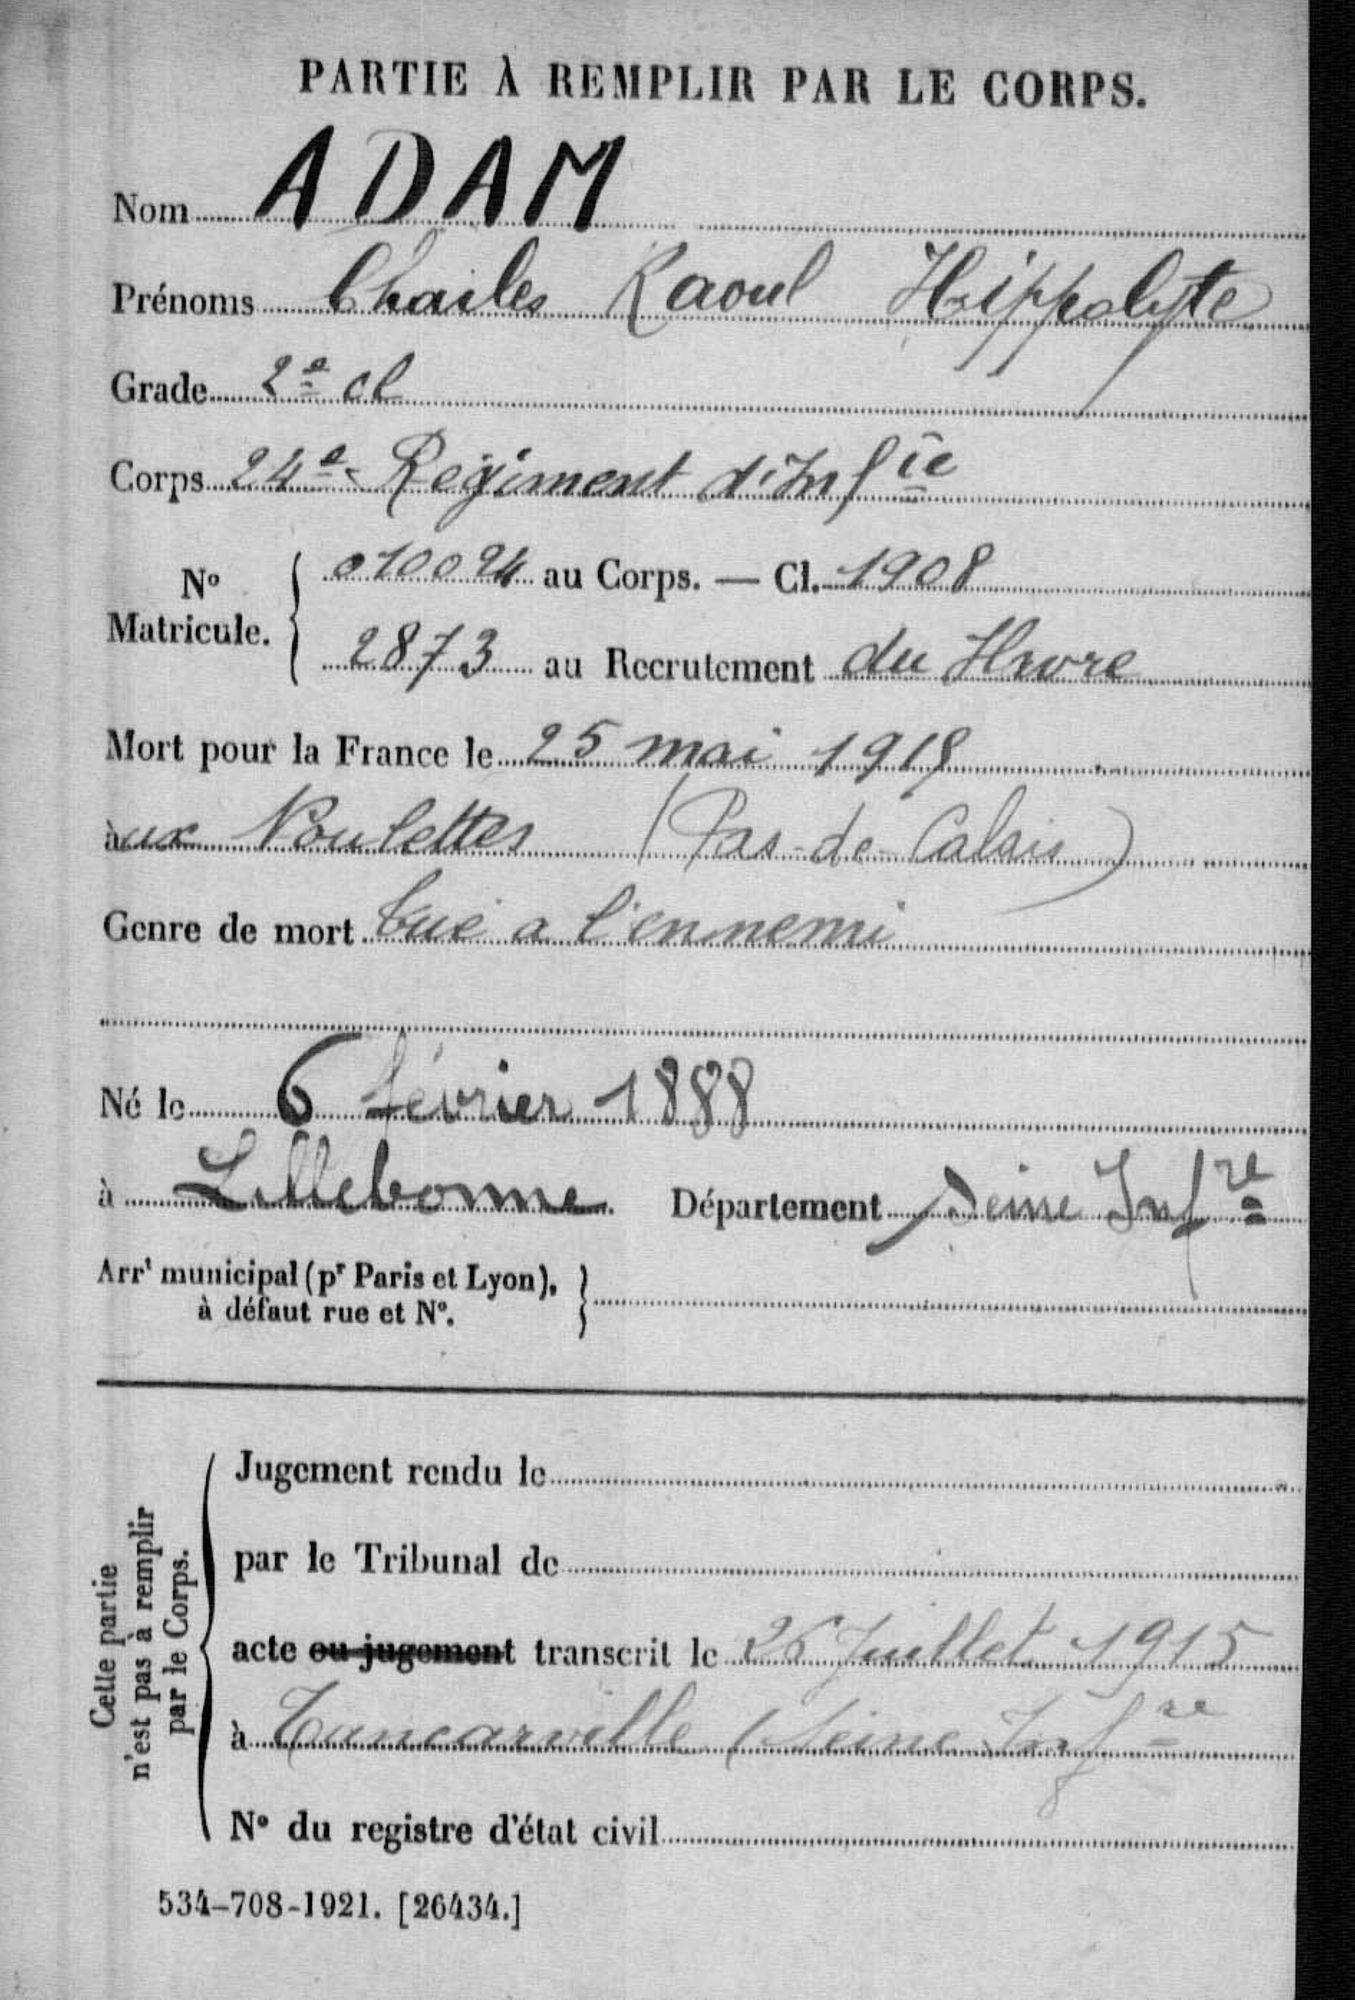 PARTIE À REMPLIR PAR LE CORPS.
Nom ADAM
Prénoms Charles Raoul Hippolyte
Grade 2e cl
Corps 24e Régiment d'Infie
No Matricule. { 010024 au Corps. — Cl. 1908
2873 au Recrutement du Havre
Mort pour la France le 25 mai 1915
aux Noulettes (Pas-de-Calais)
Genre de mort tué a l'ennemi
Né le 6 février 1888
à Lillebonne. Département Seine Infre
Arrt municipal (pr Paris et Lyon), }
à défaut rue et No.
Cette partie
n'est pas à remplir
par le Corps.
Jugement rendu le
par le Tribunal de
acte ou jugement transcrit le 26 Juillet 1915
à Tancarville (Seine Infre
No du registre d'état civil
534-708-1921. [26434.]